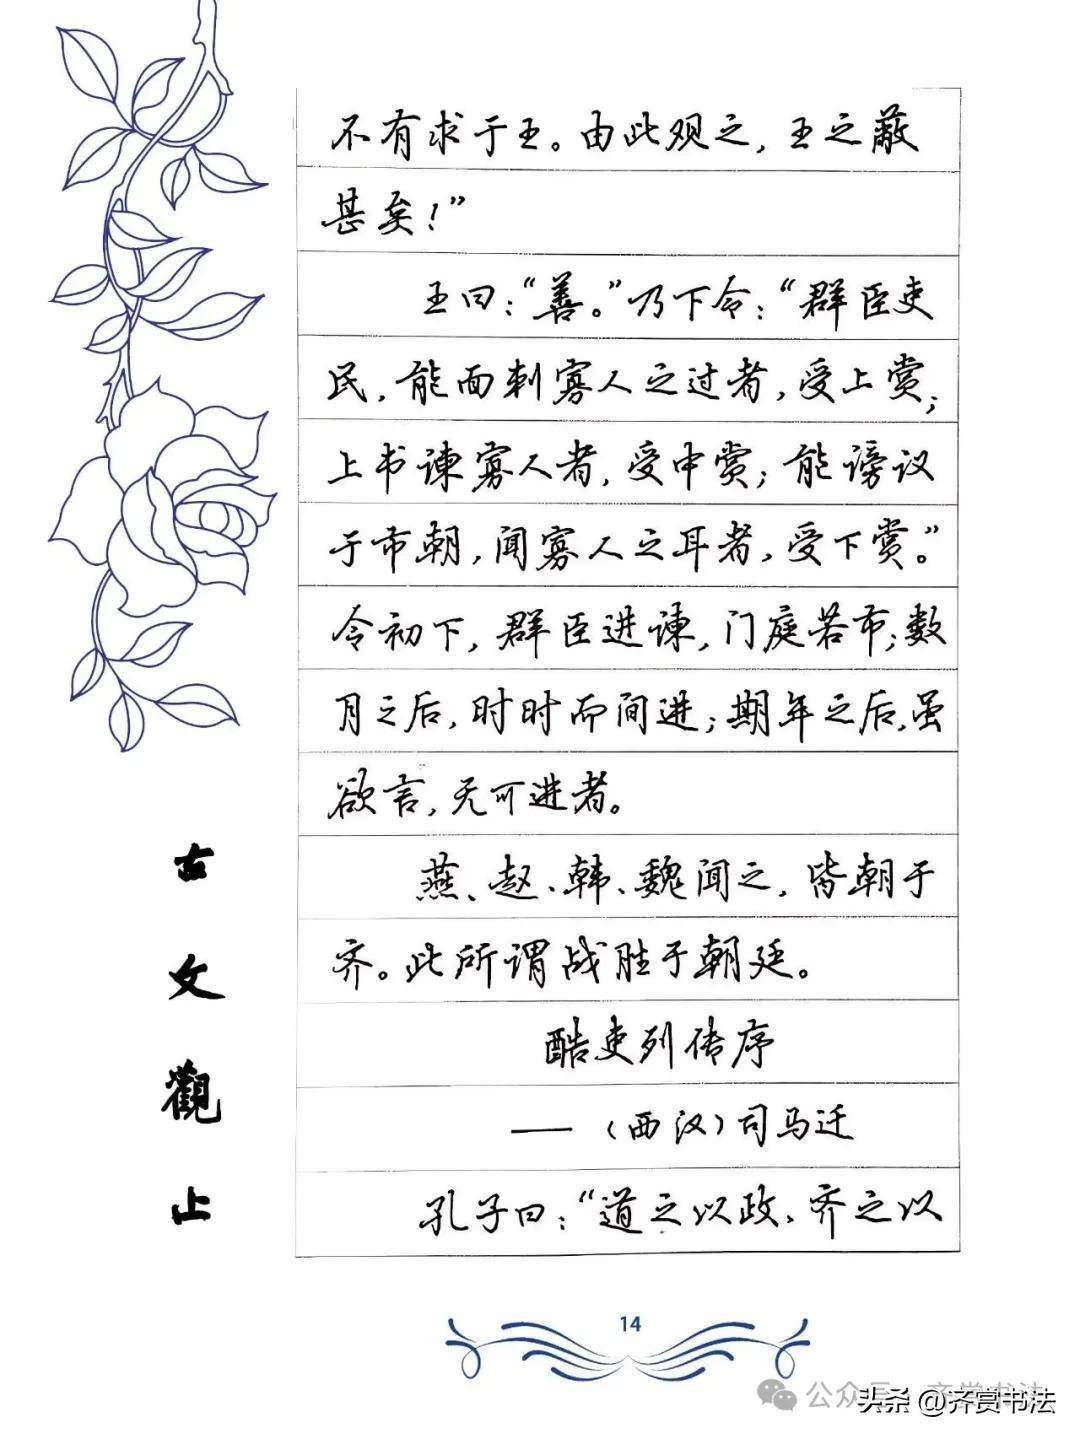 不有求于王。由此观之，王之蔽
甚矣！”
王曰：“善。”乃下令：“群臣吏
民，能面刺寡人之过者，受上赏；
上书谏寡人者，受中赏；能谤议
于市朝，闻寡人之耳者，受下赏。”
令初下，群臣进谏，门庭若市；数
月之后，时时而间进；期年之后，虽
欲言，无可进者。
燕、赵、韩、魏闻之，皆朝于
齐。此所谓战胜于朝廷。
酷吏列传序
——（西汉）司马迁
孔子曰：“道之以政，齐之以
古文觀止
14
头条 @齐赏书法